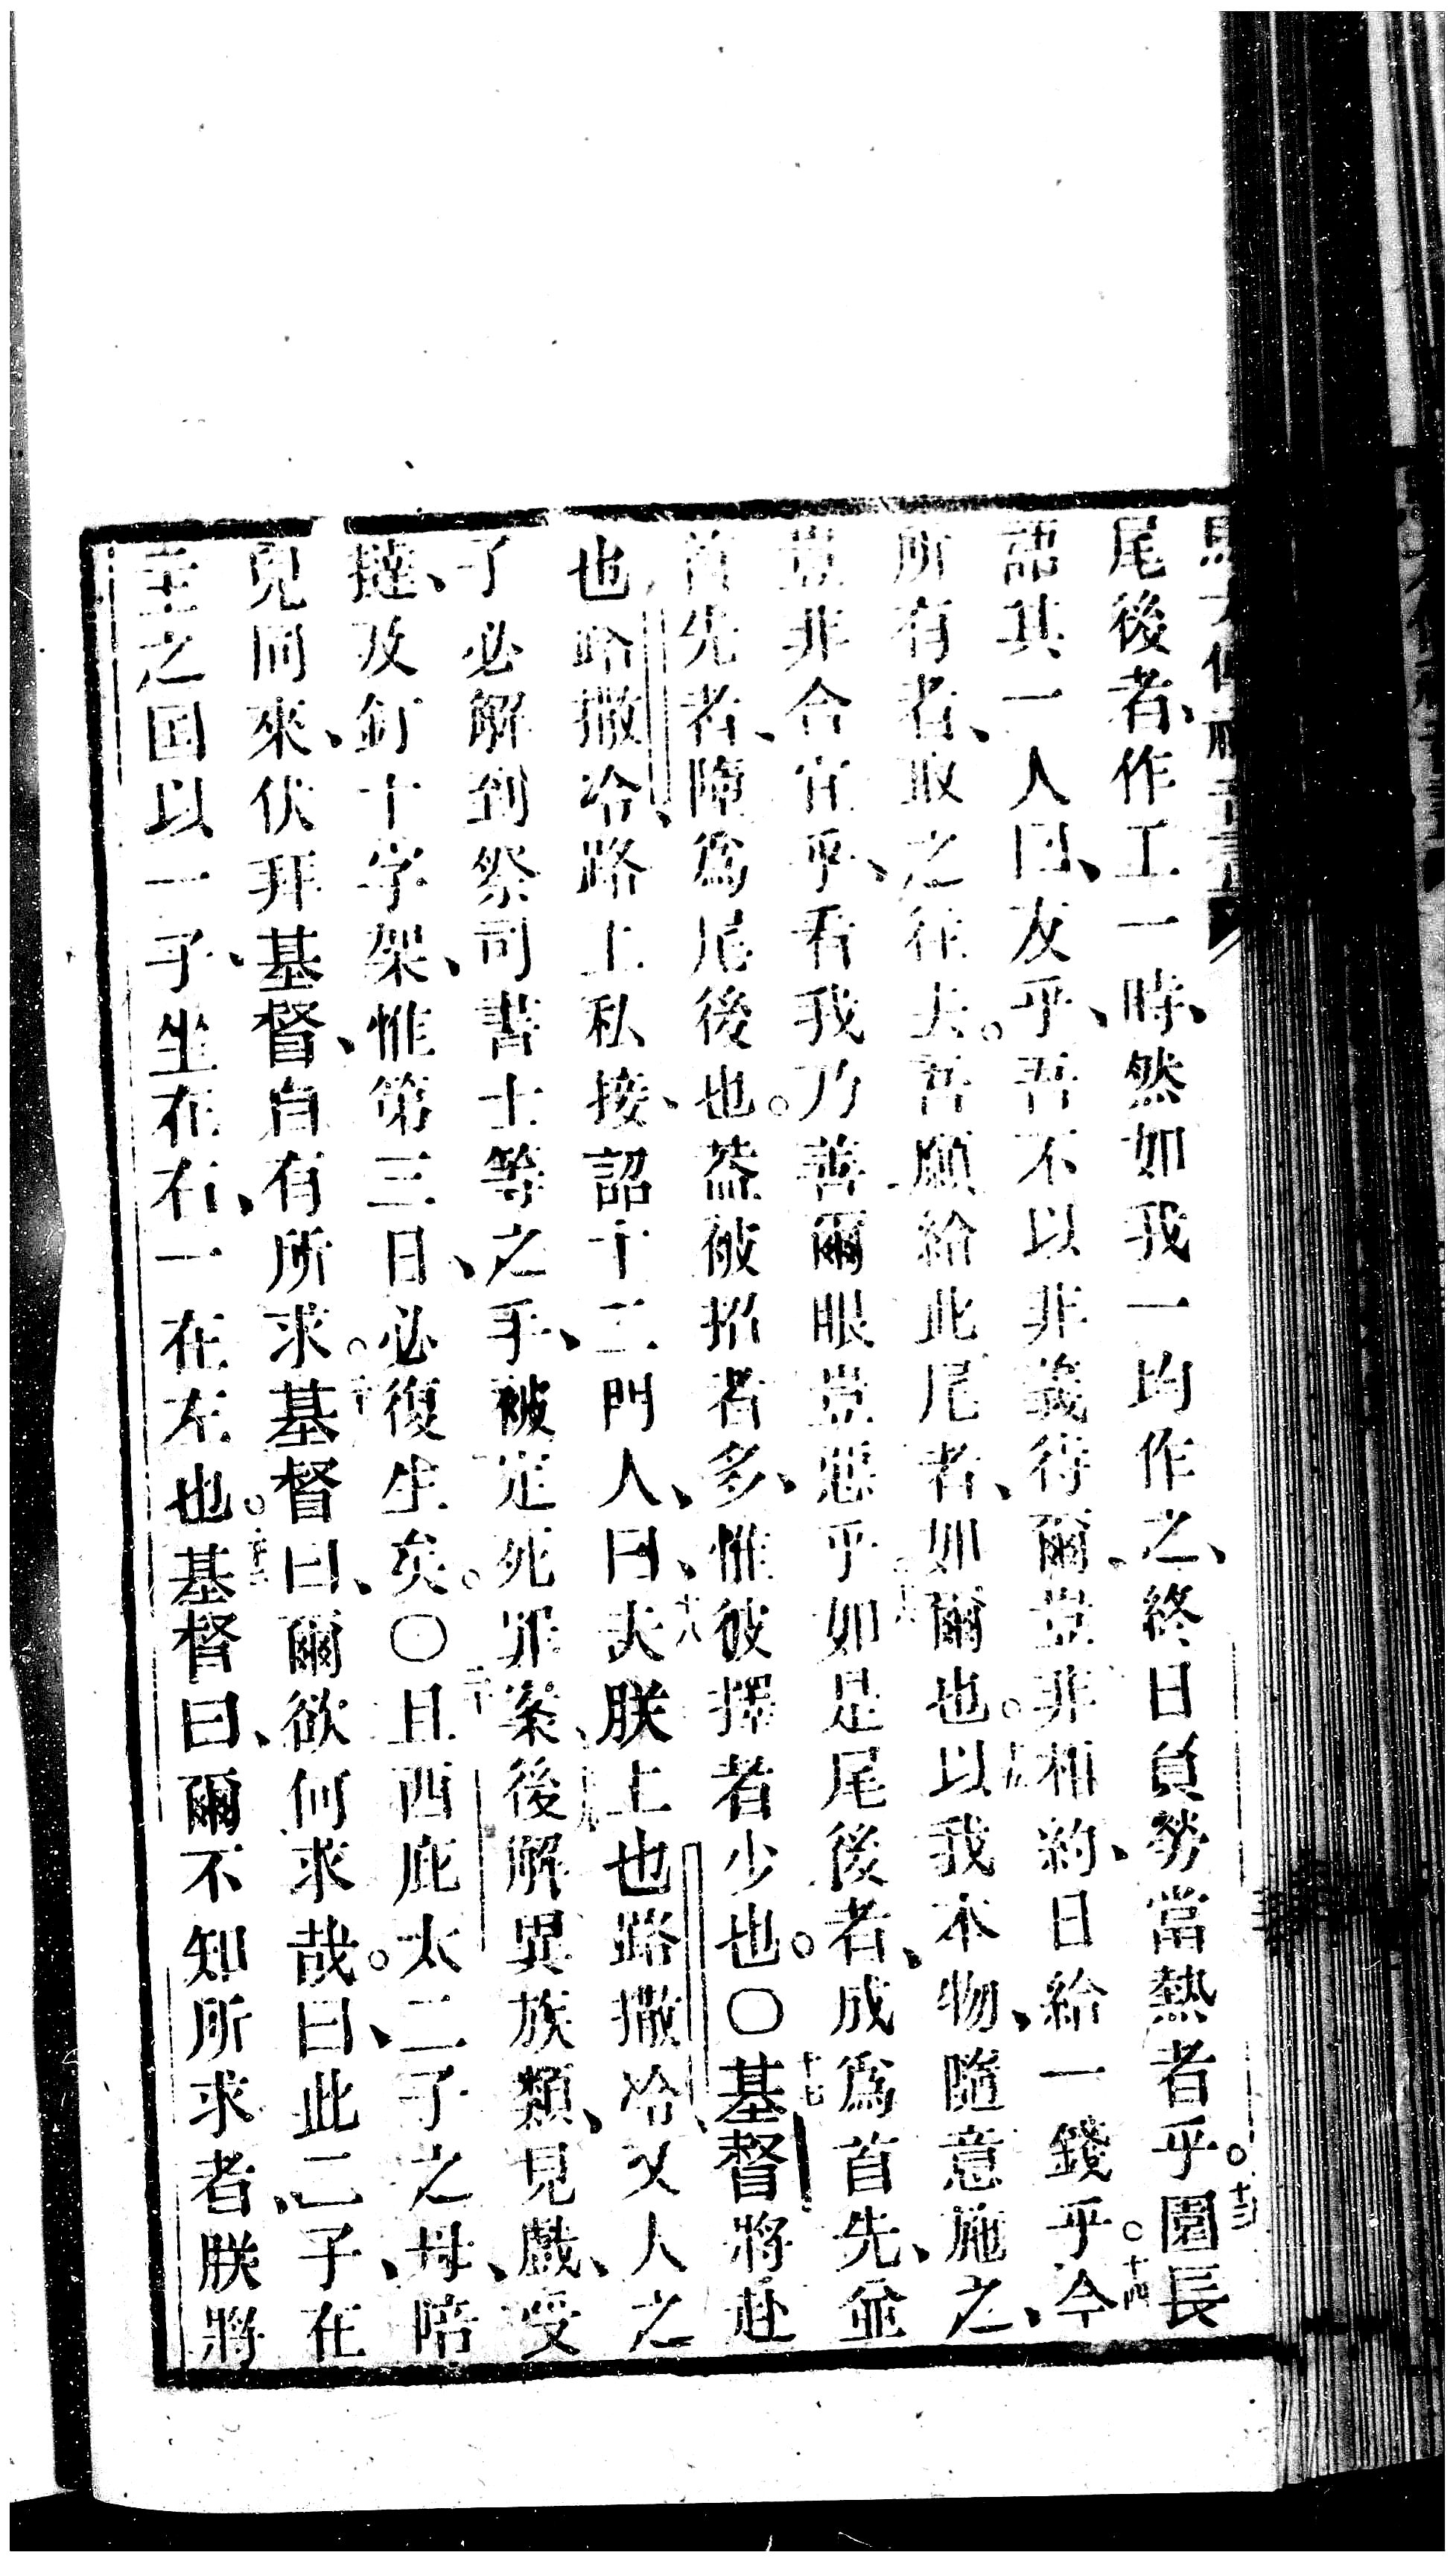 尾後者、作工一時、然如我一均作之、終日負勞當熱者乎。十三園長
語其一人曰、友乎、吾不以非義待爾、豈非相約、日給一錢乎。十四今
所有者、取之往去。吾願給此尾者、如爾也。十五以我本物、隨意施之、
豈非合宜乎、看我乃善爾眼豈惡乎十六如是尾後者、成爲首先、並
首先者、障爲尾後也。蓋被招者多、惟彼擇者少也。〇十七基督將赴
也路撒冷、路上私接、詔十二門人、曰、十八夫朕上也路撒冷、又人之
子必解到祭司書士等之手、被定死罪案、十九後解異族類、見戲、受
撻、及釘十字架、惟第三日、必復生矣。〇二十且西庇太二子之母、陪
兒同來、伏拜基督、自有所求。二十一基督曰、爾欲何求哉。曰、此二子、在
主之国以一子、坐在右、一在左也。二十二基督曰、爾不知所求者、朕將